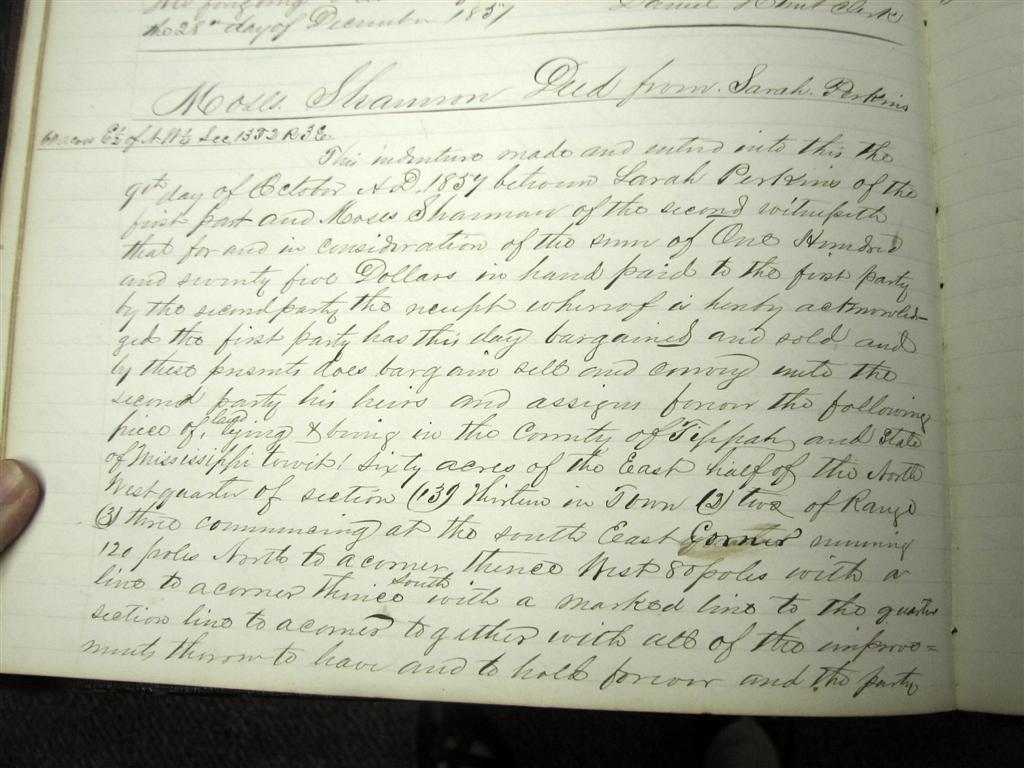 the foregoing
the 28th day of December 1857 Daniel Hunt Clerk
Moses Shannon Deed from Sarah Perkins
60 acres E½ of N.W¼ Sec 13 T2 R 3 E
This indenture made and entrd into this the
9th day of October A.D. 1857 between Sarah Perkins of the
first part and Moses Shannon of the second witnesseth
that for and in consideration of the sum of One Hundred
and seventy five Dollars in hand paid to the first party
by the second party the receipt whereof is hereby acknowled-
ged the first party has this day bargained and sold and
by these presents does bargain sell and convey unto the
second party his heirs and assigns forever the following
piece of land lying & being in the County of Tippah and State
of Mississippi towit! sixty acres of the East half of the North
West quarter of section (13) thirteen in Town (2) two of Range
(3) three commencing at the south East Corner running
120 poles North to a corner thence West 80 poles with a
line to a corner thence south with a marked line to the quarter
section line to a corner together with all of the improve=
ments thereon to have and to hold forever and the party